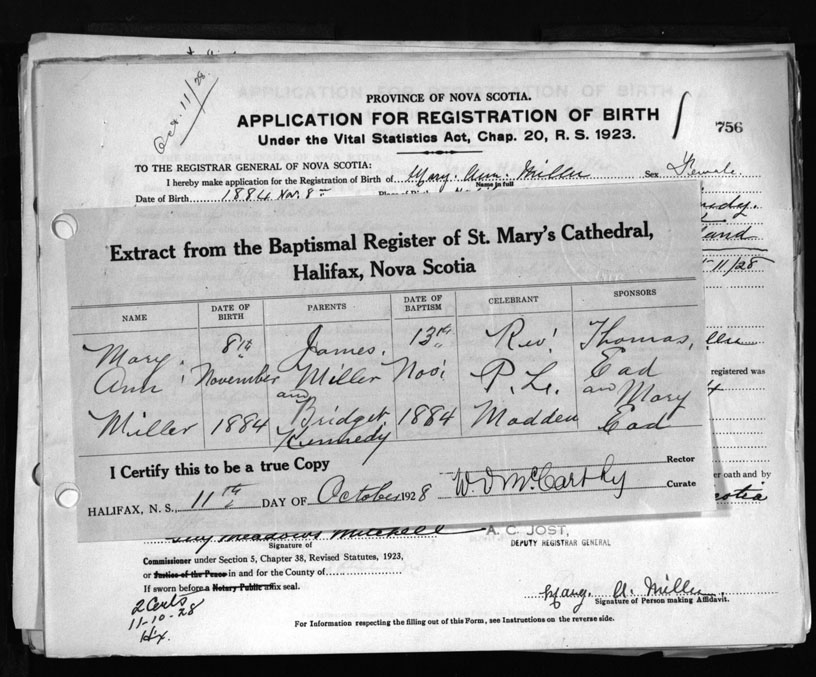 Oct. 11/28
PROVINCE OF NOVA SCOTIA.
APPLICATION FOR REGISTRATION OF BIRTH
Under the Vital Statistics Act, Chap. 20, R. S. 1923.
756
TO THE REGISTRAR GENERAL OF NOVA SCOTIA:
I hereby make application for the Registration of Birth of Mary. Ann. Miller Sex Female
Name in full
Date of Birth 1884 Nov. 8th
11/28
Extract from the Baptismal Register of St. Mary's Cathedral,
Halifax, Nova Scotia
NAME DATE OF BIRTH PARENTS DATE OF BAPTISM CELEBRANT SPONSORS
Mary. 8th James. 13th Rev. Thomas,
Ann November Miller Nov. P. L. Ead
and and Mary
Miller 1884 Bridget 1884 Madden Ead
Kennedy
registered was
I Certify this to be a true Copy
Rector
HALIFAX, N. S., 11th DAY OF October 1928 W. D. McCarthy Curate
er oath and by
otia
Guy Meadows Mitchell
Signature of
A. C. JOST,
DEPUTY REGISTRAR GENERAL
Commissioner under Section 5, Chapter 38, Revised Statutes, 1923,
or Justice of the Peace in and for the County of
If sworn before a Notary Public affix seal.
2 Certs
11-10-28
Hx.
Mary. A. Miller
Signature of Person making Affidavit.
For Information respecting the filling out of this Form, see Instructions on the reverse side.